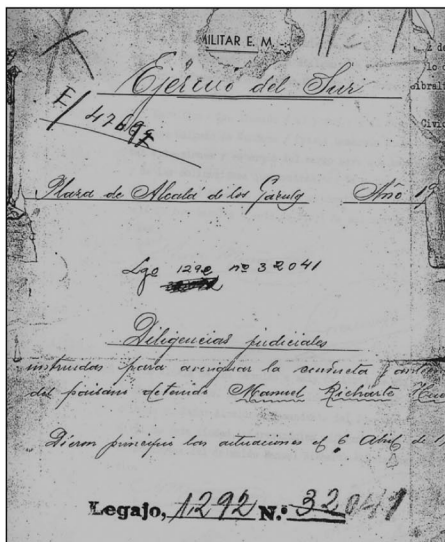 MILITAR E. M.
Ejército del Sur
E/ 47697
Plaza de Alcalá de los Gazules Año 19
Lgo 1292 nº 32041
Diligencias judiciales
instruidas para averiguar la conducta y
del paisano detenido Manuel Richarte
Dieron principio las actuaciones el 6 Abril de 1
Legajo, 1292 N.º 32041